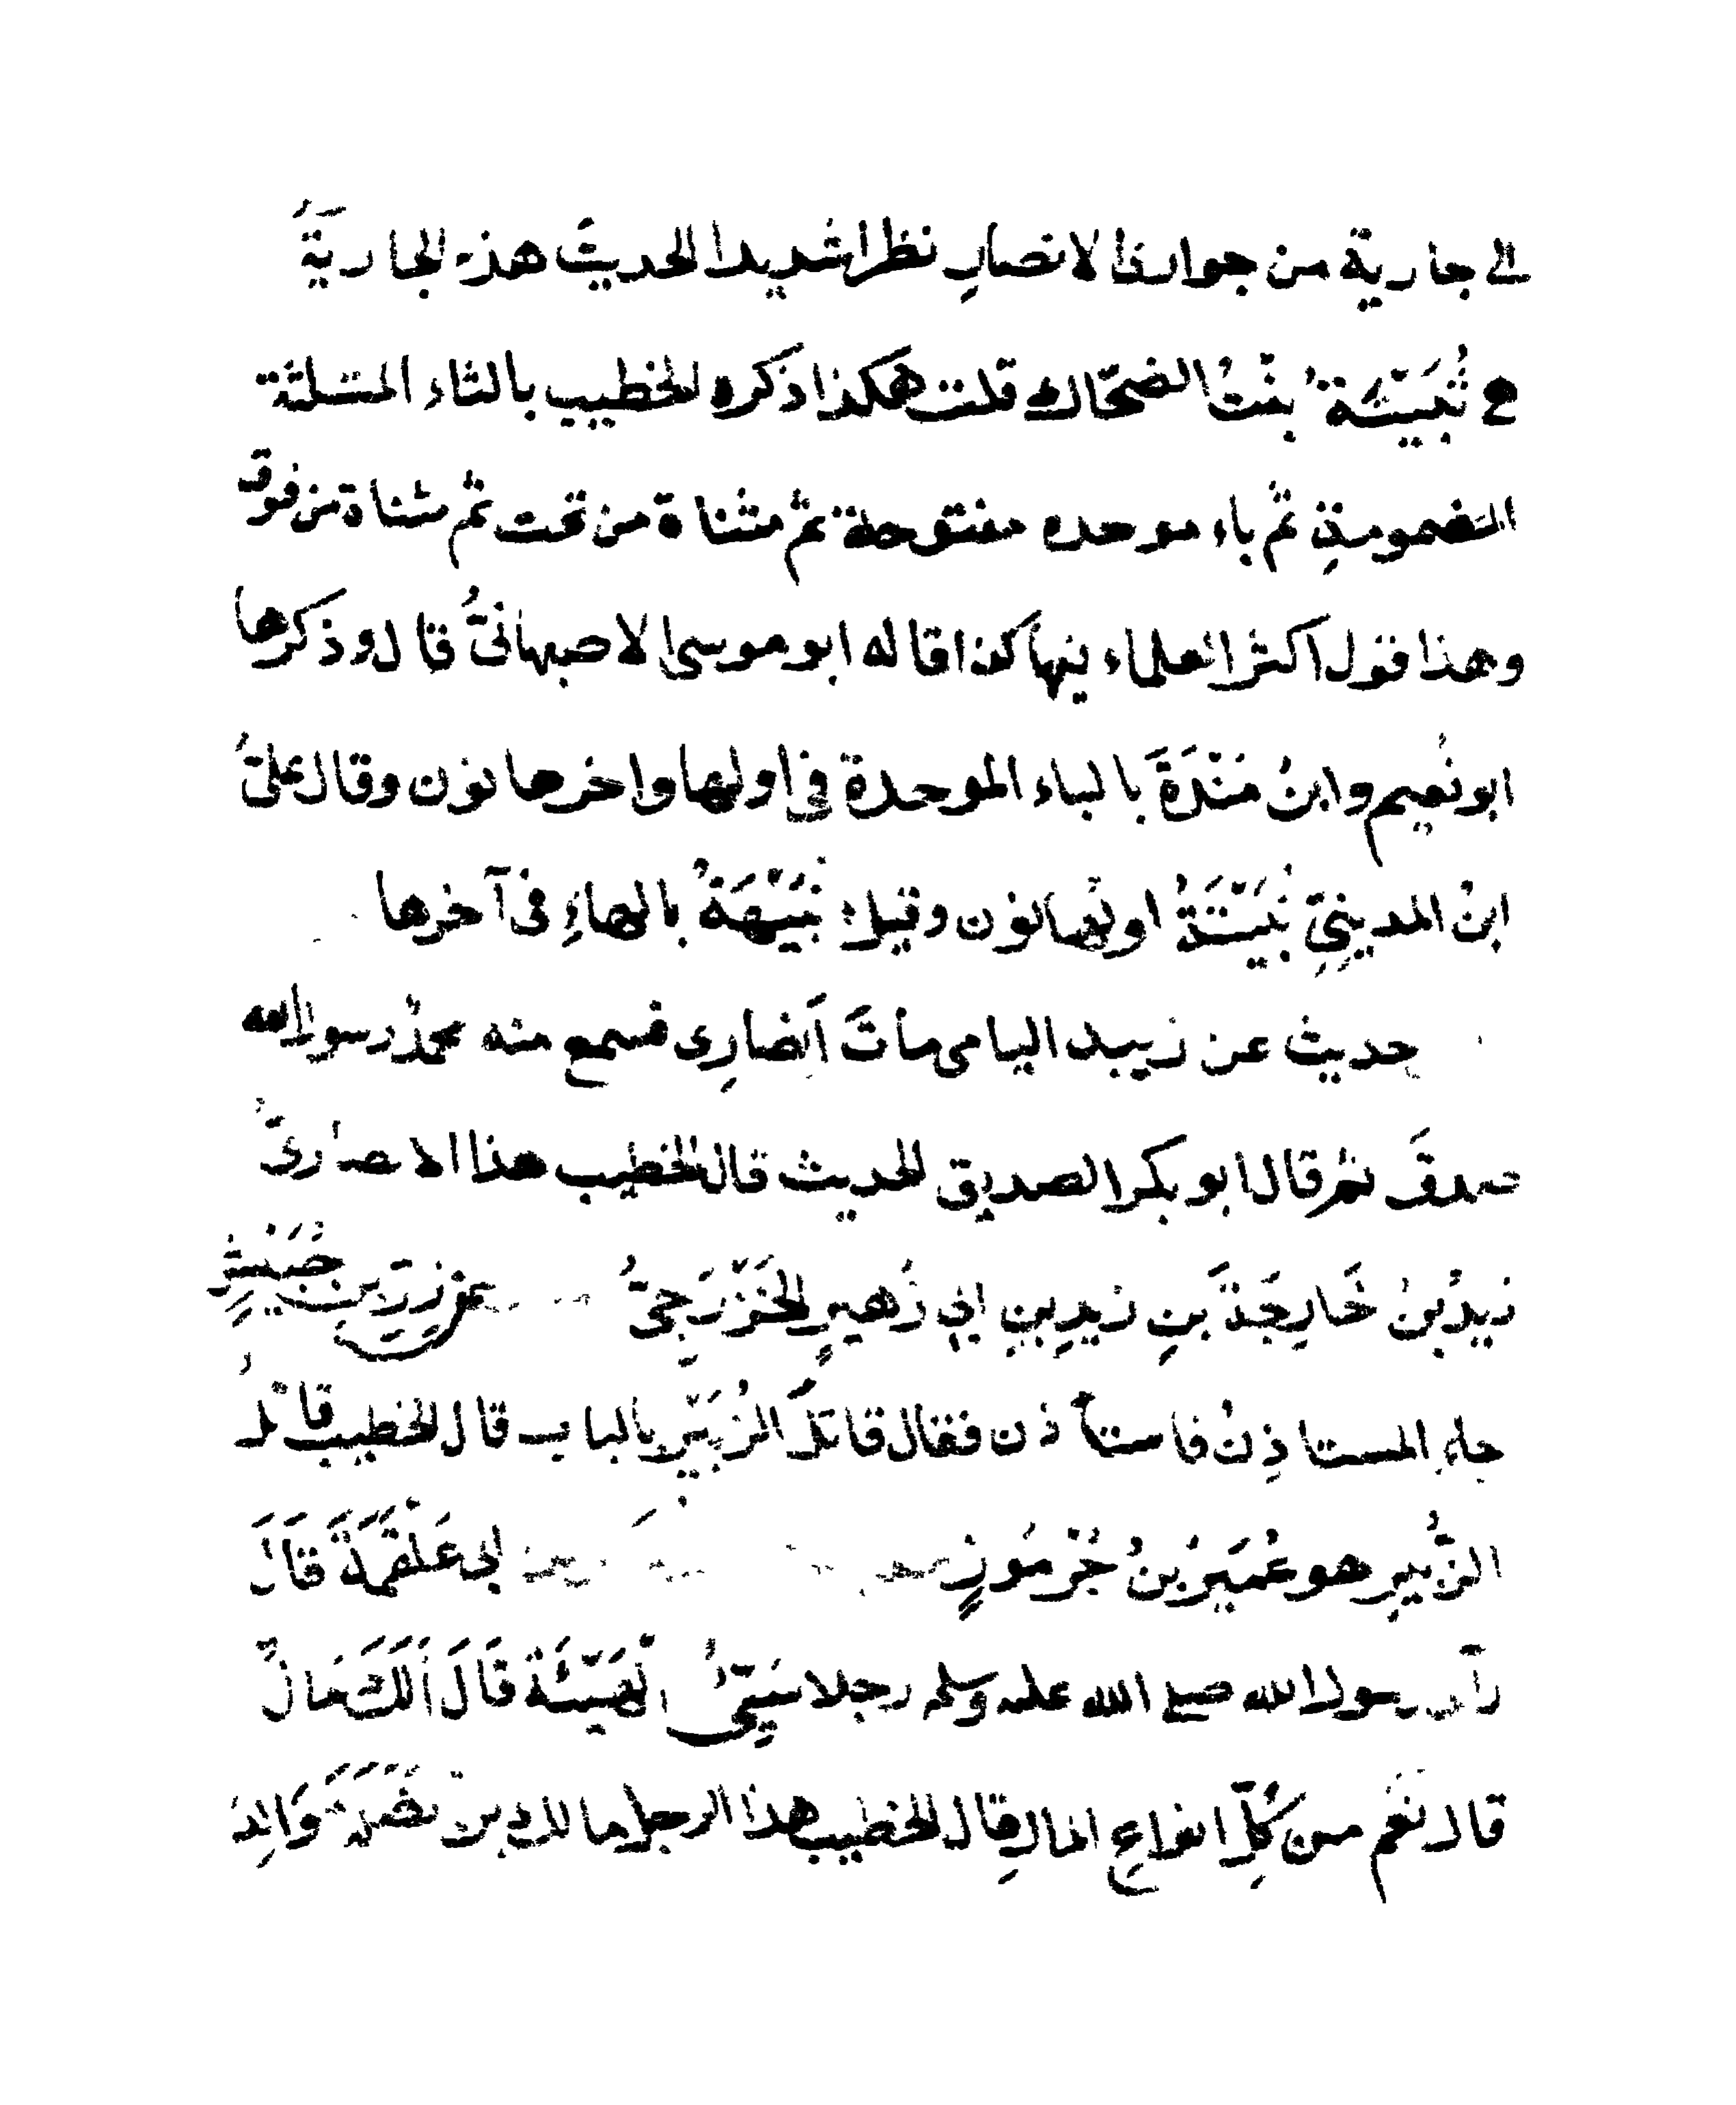 الى جارية من جوارى الانصارِ نظرا شديدا الحديثَ هذه الجاريَةُ
هى ثُبَيْتَةُ بنتُ الضحّاك قلت هكذا ذكره الخطيب بالثاء المثلثة
المضمومةِ ثم باء موحده مفتوحة ثم مثناة من تحت ثم مثناة من فوق
وهذا قول اكثر العلماء فيها كذا قاله ابو موسى الاصبهانىُّ قال وذكرها
ابو نُعيم وابنُ مَنْدَةَ بالباء الموحدة في اولها واخرها نون وقال علىُّ
ابنُ المدينِىِّ نُبَيْتَةُ اولها نون وقيل نُبَيْهَةُ بالهاءِ فى آخرها
حديث عن زبيد اليامى ماتَ اَنصارِى فسمع منه محمدٌ رسول الله
صدقَ ثم قال ابو بكر الصديق الحديث قال الخطيب هذا الانصارىُّ
زيدُ بنُ خَارِجَةَ بنِ زيدِ بنِ ابى زُهيرٍ الخَزْرَجِىُّ عن زرّ بن حُبَيْشٍ
جاء المستاذِنُ فاستاذن فقال قاتلُ الزُبَيْرِ بالباب قال الخطيب قاتلُ
الزُّبيرِ هو عُمَيرُ بنُ جُرْمُوزٍ ابى عَلْقَمَةَ قَالَ
رآنى رسول الله صلى الله عليه وسلم رجلا سَيِّئُ الهَيْئَةِ قَالَ اَلَكَ مَالٌ
قال نَعَم من كُلِّ انواعِ المالِ قال الخطيب هذا الرجل مالك بن نَضْلَةَ وَالِدُ